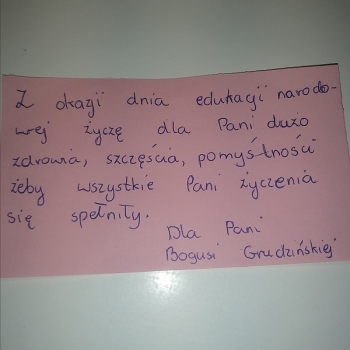 Z okazji dnia edukacji narodo-
wej życzę dla Pani dużo
zdrowia, szczęścia, pomyśtności
żeby wszystkie Pani życzenia
się spełniły.
Dla Pani
Bogusi Grudzińskiej